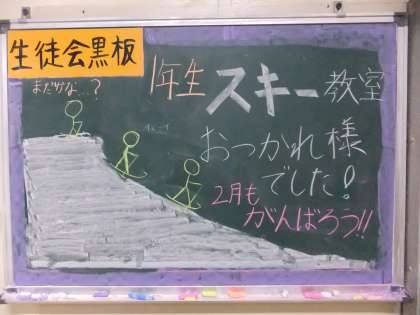 生徒会黒板
1年生 スキー教室
まだかな…?
おつかれ様
でした!
2月も
がんばろう!!